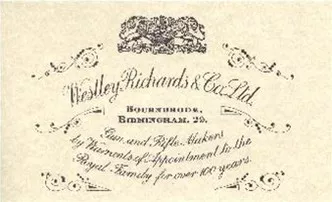 Westley Richards & Co. Ltd.
BOURNBROOK,
BIRMINGHAM. 29.
Gun and Rifle Makers
by Warrants of Appointment to the
Royal Family for over 100 years.